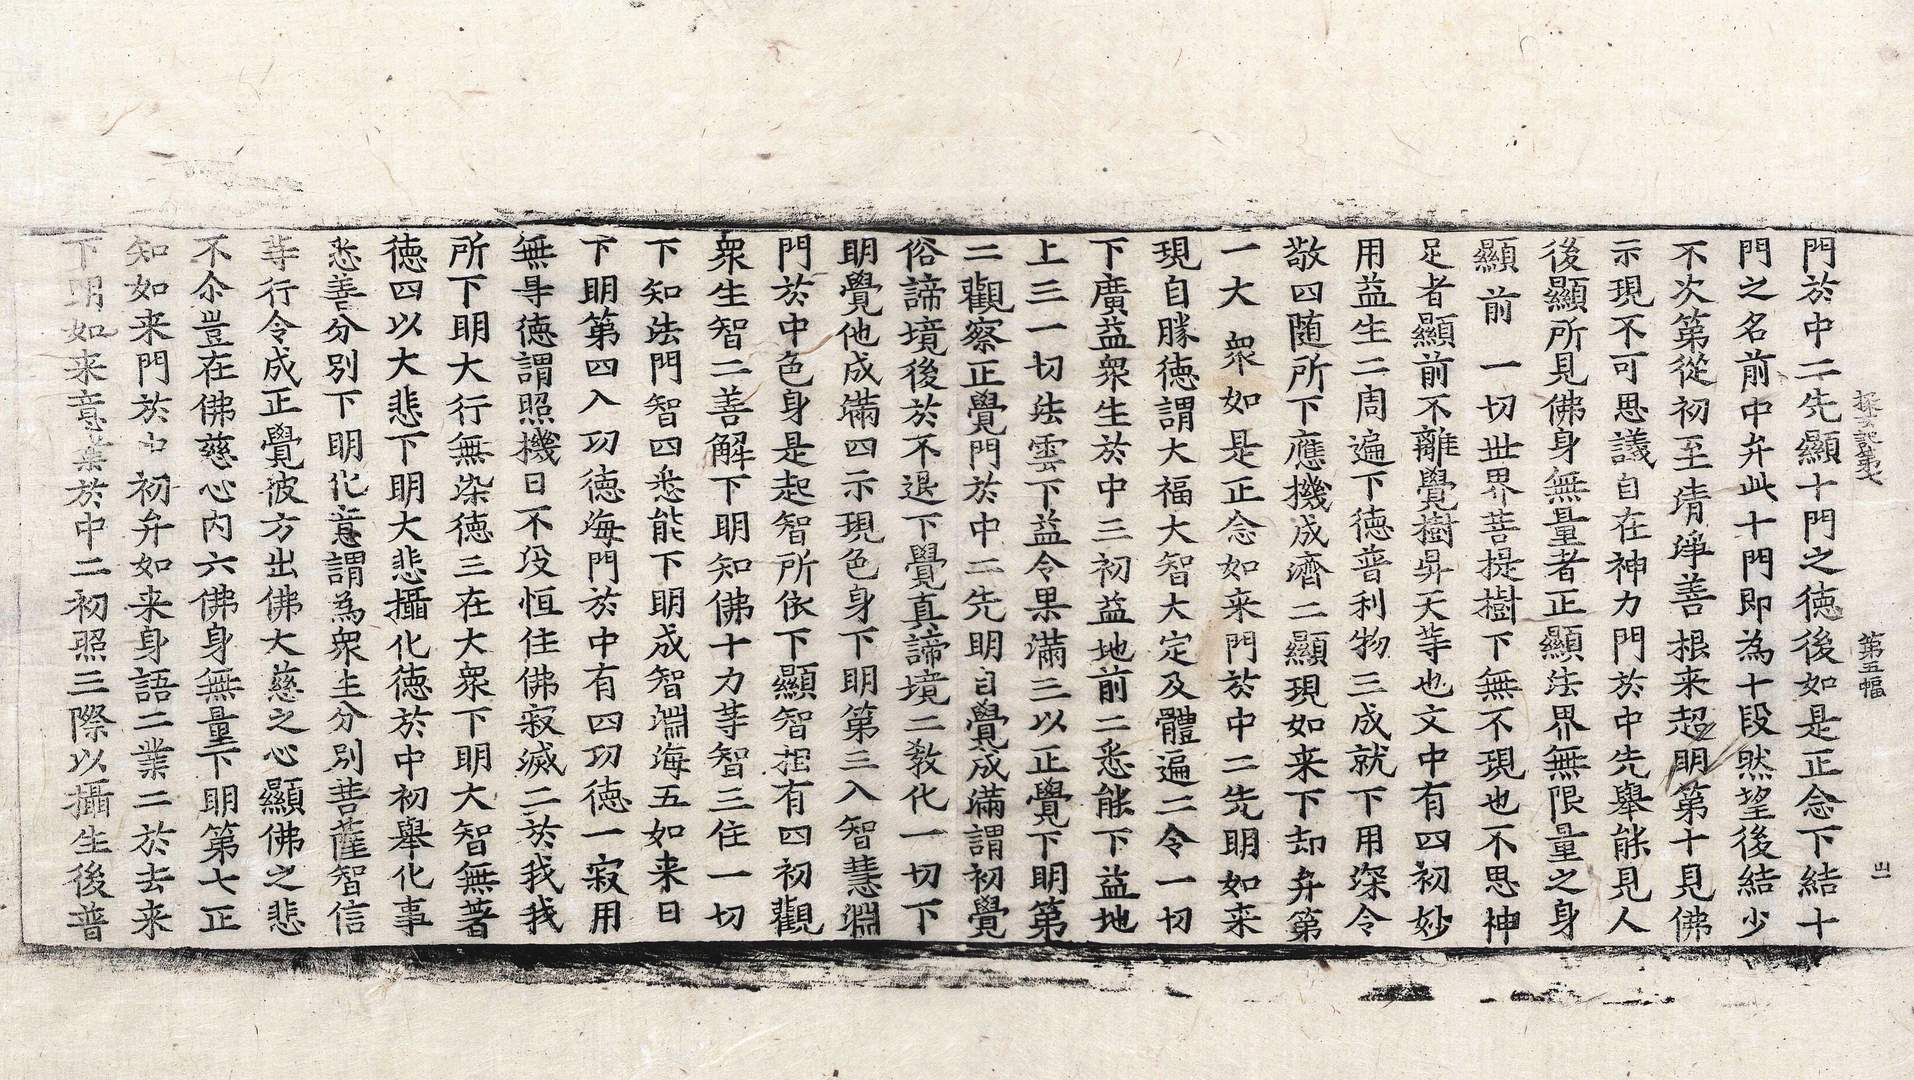 探玄記第七　第五幅　出
門於中二先顯十門之德後如是正念下結十
門之名前中弁此十門即為十段然望後結少
不次第從初至清淨善根来起明第十見佛
示現不可思議自在神力門於中先舉能見人
後顯所見佛身無量者正顯法界無限量之身
顯前一切世界菩提樹下無不現也不思神
足者顯前不離覺樹昇天等也文中有四初妙
用益生二周遍下德普利物三成就下用深令
敬四随所下應機成濟二顯現如来下却弁第
一大衆如是正念如来門於中二先明如来
現自勝德謂大福大智大定及體遍二令一切
下廣益衆生於中三初益地前二悉能下益地
上三一切法雲下益令果滿三以正覺下明第
二觀察正覺門於中二先明自覺成滿謂初覺
俗諦境後於不退下覺真諦境二教化一切下
明覺他成滿四示現色身下明第三入智慧淵
門於中色身是起智所依下顯智挃有四初觀
衆生智二善解下明知佛十力等智三住一切
下知法門智四悉能下明成智淵海五如来日
下明第四入功德海門於中有四功德一寂用
無㝵德謂照機日不没恒住佛寂滅二於我我
所下明大行無染德三在大衆下明大智無著
德四以大悲下明大悲攝化德於中初舉化事
悉善分別下明化意謂為衆生分別菩薩智信
等行令成正覺彼方出佛大慈之心顯佛之悲
不尒豈在佛慈心內六佛身無量下明第七正
知如来門於中初弁如来身語二業二於去来
下明如来意業於中二初照三際以攝生後普